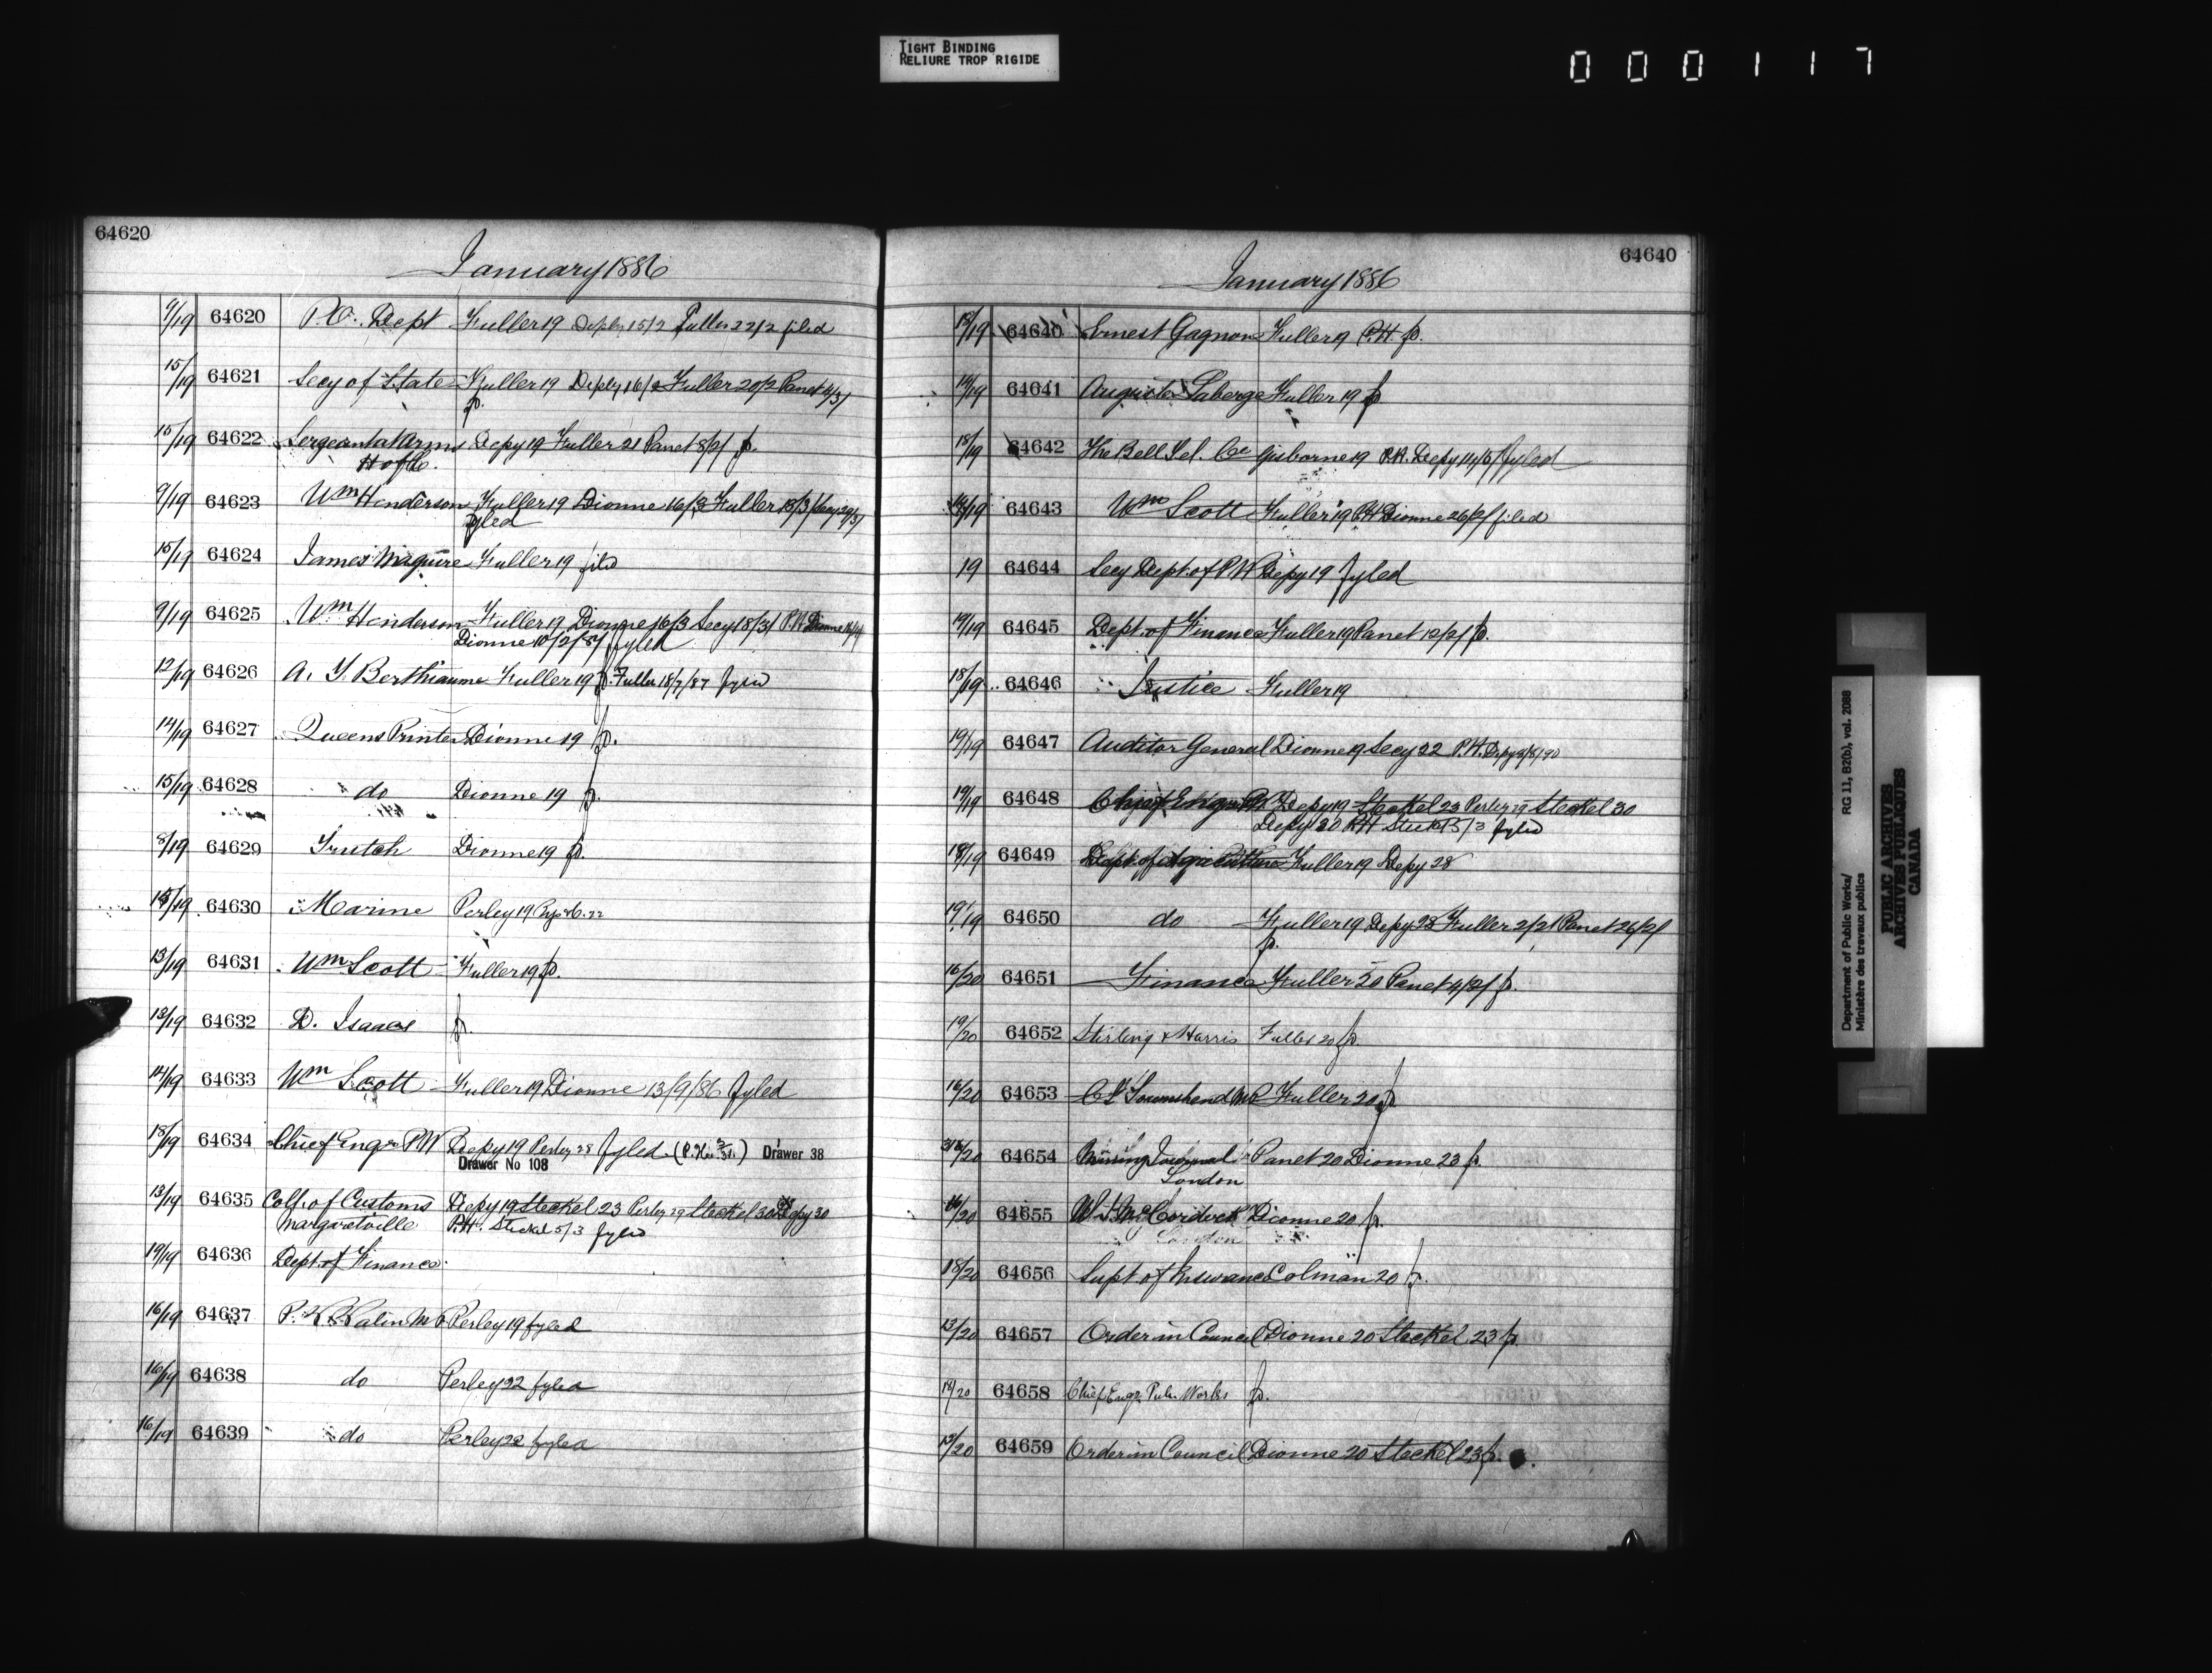 TIGHT BINDING
RELIURE TROP RIGIDE
000117
64620
January 1886
9/19 64620 P.O. Dept Fuller 19 Depy 15/2 Fuller 22/2 filed
15/19 64621 Secy of State Fuller 19 Depy 16/2 Fuller 20/2 Panet 4/3/
p.
15/19 64622 Sergeant at Arms Depy 19 Fuller 21 Panet 8/2/ p.
H of C.
9/19 64623 Wm Henderson Fuller 19 Dionne 16/3 Fuller 18/3/ Secy 29/3/
fyled
15/19 64624 James Maguire Fuller 19 filed
9/19 64625 Wm Henderson Fuller 19 Dionne 16/3 Secy 18/3/ P.H. Dionne
Dionne 10/2/87 fyled
12/19 64626 A. Y. Berthiaume Fuller 19 p. Fuller 18/7/87 fyled
14/19 64627 Queens Printer Dionne 19 p.
15/19 64628 do Dionne 19 p.
8/19 64629 Trutch Dionne 19 p.
15/19 64630 Marine Perley 19
13/19 64631 Wm Scott Fuller 19 p.
13/19 64632 D. Isaacs p.
14/19 64633 Wm Scott Fuller 19 Dionne 13/9/86 fyled
18/19 64634 Chief Engr PW Depy 19 Perley 28 fyled (P.H. ) Drawer 38
Drawer No 108
13/19 64635 Coll. of Customs Depy 19 Steckel 23 Perley 29 Steckel 30 Depy 30
Margretville P.H. Steckel 5/3 fyled
19/19 64636 Dept. of Finance
16/19 64637 P. V. Valin MP Perley 19 fyled
16/19 64638 do Perley 22 fyled
16/19 64639 do Perley 22 fyled
64640
January 1886
18/19 64640 Ernest Gagnon Fuller 19 P.H p.
19/19 64641 Auguste Laberge Fuller 19 p
18/19 64642 The Bell Tel. Co Gisborne 19 P.H. Depy fyled
64643 Wm Scott Fuller 19 P.H Dionne 26/2/ filed
19 64644 Secy Dept. of P W Depy 19 fyled
19/19 64645 Dept. of Finance Fuller 19 Panet 12/2/ p.
18/19 64646 Justice Fuller 19
19/19 64647 Auditor General Dionne 19 Secy 22 P.H. Depy 9/8/90
19/19 64648 Chief Engr P.W Depy 19 Steckel 23 Perley 29 Steckel 30
Depy 30 P.H Steckel 5/3 fyled
18/19 64649 Dept. of Agriculture Fuller 19 Depy 28
19/19 64650 do Fuller 19 Depy 28 Fuller 2/2/ Panet 26/2/
p.
16/20 64651 Finance Fuller 20 Panet 4/2/ p.
19/20 64652 Stirling & Harris Fuller 20 p.
16/20 64653 C J Townshend MP Fuller 20 p
64654 Mining Journal Panet 20 Dionne 23 p.
London
16/20 64655 W. J. McCordock Dionne 20 p.
London
18/20 64656 Supt. of Insurance Colman 20 p.
13/20 64657 Order in Council Dionne 20 Steckel 23 p.
19/20 64658 Chief Engr. Pub. Works p.
13/20 64659 Order in Council Dionne 20 Steckel 23 p.
Department of Public Works/ RG 11, B2(b), vol. 2088
Ministère des travaux publics
PUBLIC ARCHIVES
ARCHIVES PUBLIQUES
CANADA